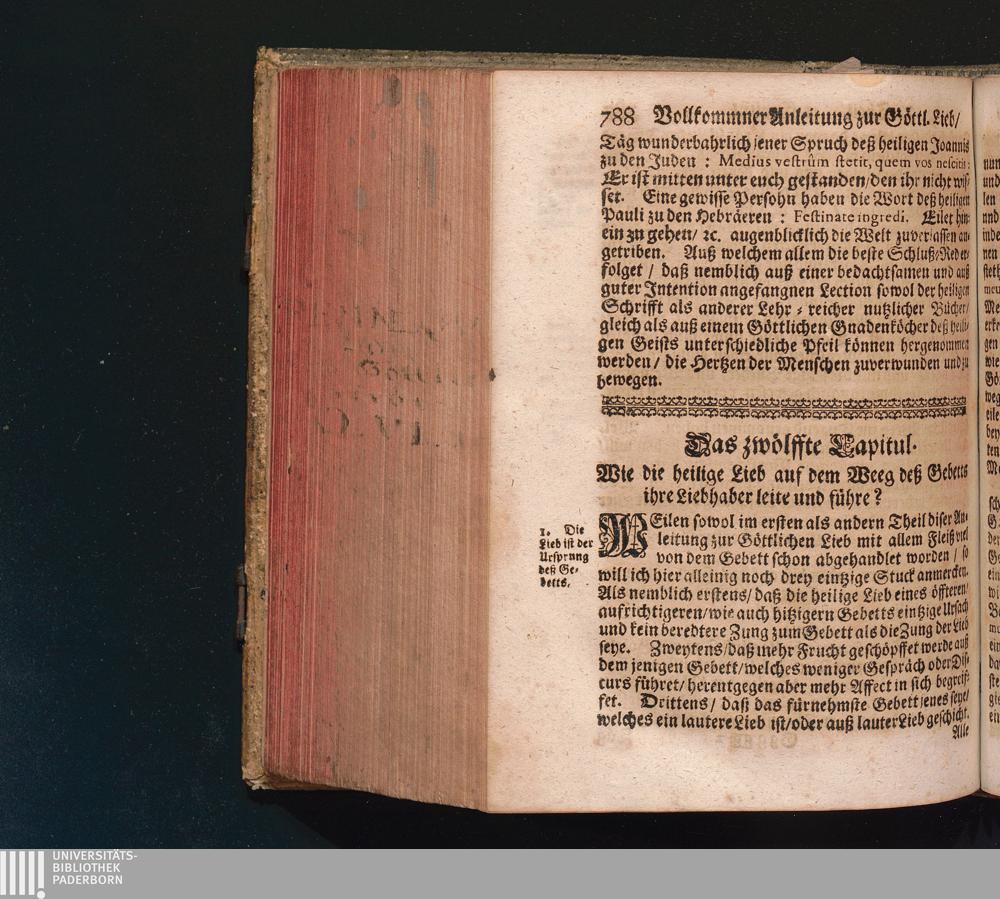 788 Vollkommner Anleitung zur Göttl. Lieb/
Täg wunderbahrlich jener Spruch deß heiligen Joannis
zu den Juden : Medius vestrûm stetit, quem vos nescitis:
Er ist mitten unter euch gestanden/den ihr nicht wis-
set. Eine gewisse Persohn haben die Wort deß heiligen
Pauli zu den Hebräeren : Festinate ingredi. Eilet hin-
ein zu gehen/ ꝛc. augenblicklich die Welt zuverlassen an-
getriben. Auß welchem allem die beste Schluß-Red er-
folget / daß nemblich auß einer bedachtsamen und auß
guter Intention angefangnen Lection sowol der heiligen
Schrifft als anderer Lehr-reicher nutzlicher Bücher/
gleich als auß einem Göttlichen Gnadenköcher deß heili-
gen Geists unterschiedliche Pfeil können hergenommen
werden / die Hertzen der Menschen zuverwunden und zu
bewegen.
Das zwölffte Capitul.
Wie die heilige Lieb auf dem Weeg deß Gebetts
ihre Liebhaber leite und führe?
1. Die
Lieb ist der
Ursprung
deß Ge-
betts.
WEilen sowol im ersten als andern Theil diser An-
leitung zur Göttlichen Lieb mit allem Fleiß viel
von dem Gebett schon abgehandlet worden / so
will ich hier alleinig noch drey eintzige Stuck anmercken.
Als nemblich erstens/ daß die heilige Lieb eines öffteren/
aufrichtigeren/wie auch hitzigern Gebetts eintzige Ursach
und kein beredtere Zung zum Gebett als die Zung der Lieb
seye. Zweytens/daß mehr Frucht geschöpffet werde auß
dem jenigen Gebett/welches weniger Gespräch oder Dis-
curs führet/ herentgegen aber mehr Affect in sich begreif-
fet. Drittens/ daß das fürnehmste Gebett jenes seye/
welches ein lautere Lieb ist/oder auß lauter Lieb geschicht.
Alle
UNIVERSITÄTS-
BIBLIOTHEK
PADERBORN